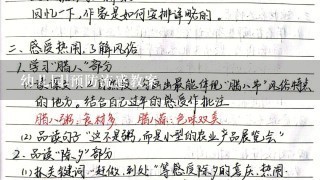 回忆一下,作家是如何安排详略的。
二、感受热闹,了解风俗
1.学习"腊八"部分
最能体现"腊八节"风俗特点
的地方。结合自己过年的感受作批注
腊八粥:食材多 腊八蒜:色味双美
(2)品读句子"这不是粥,而是小型的农业产品展览会"
2.品读"除夕"部分
(1)抓关键词"赶做、到处"等感受除夕的喜庆、热闹
幼儿园预防流感教案